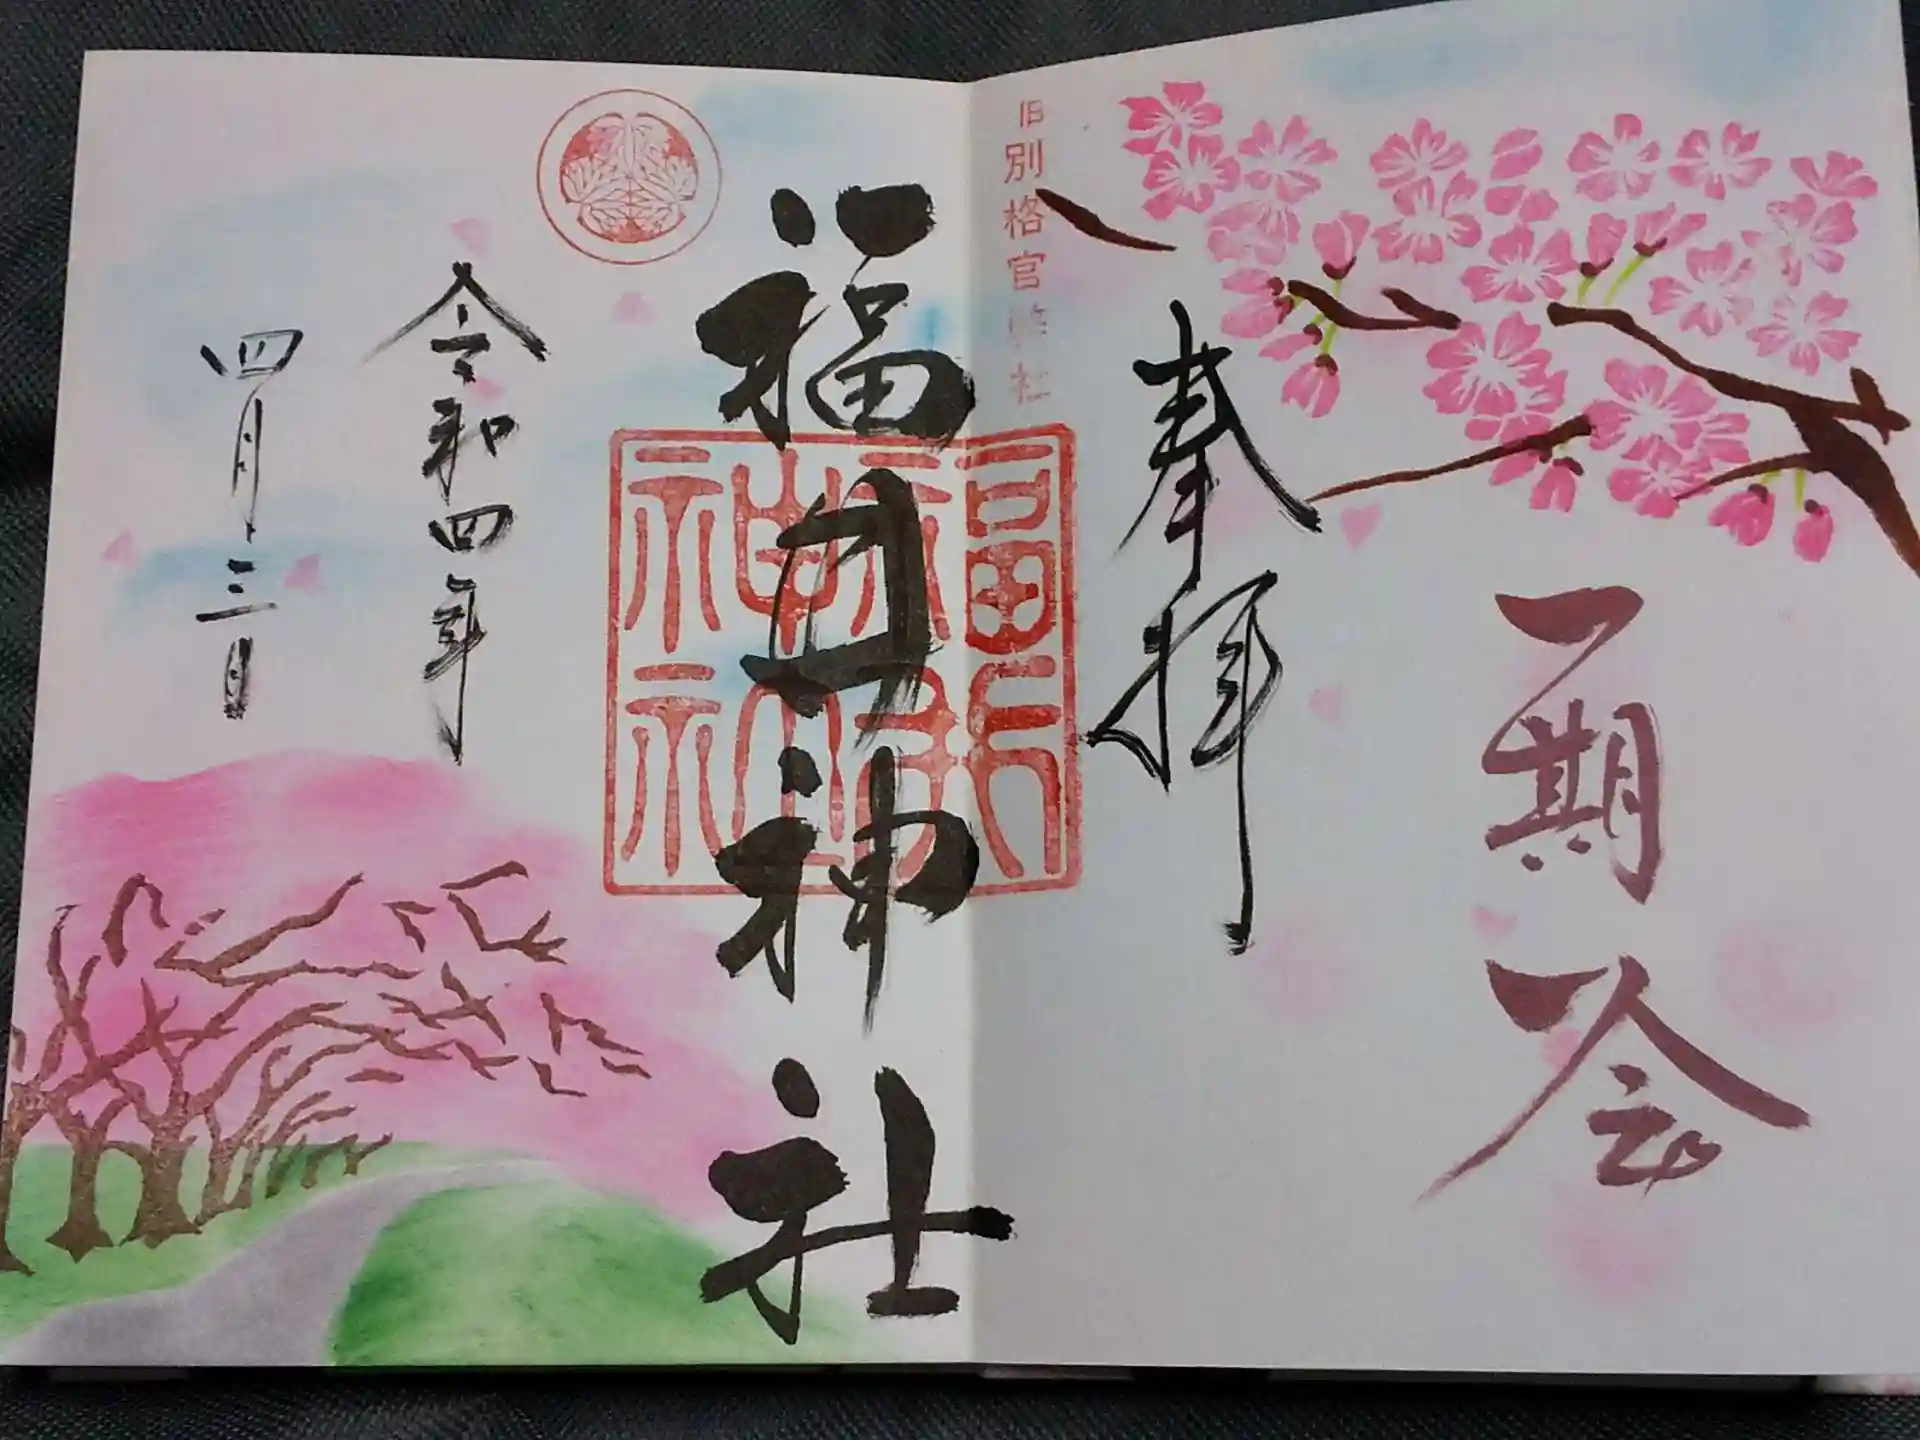 一期一会
奉拝
旧別格官幣社
福井神社
福井神社
令和四年
四月三日